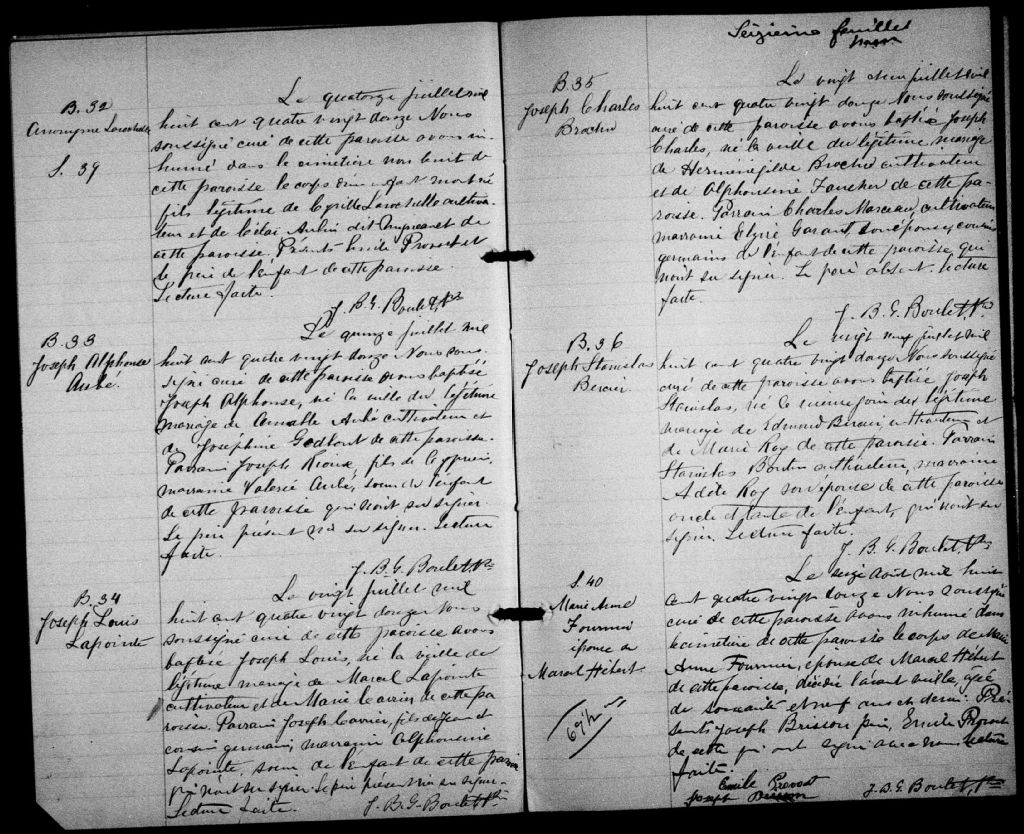 B. 32
Anonyme Larochelle
S. 39
Le quatorze juillet mil
huit cent quatre vingt douze Nous
soussigné curé de cette paroisse avons in-
humé dans le cimetière non bénit de
cette paroisse le corps d'un enfant mort né
fils légitime de Cyrille Larochelle cultiva-
teur et de Célai Aubin dit de
cette paroisse. Présents Emile Provost et
le père de l'enfant de cette paroisse.
Lecture faite.
J. B. G. Boulet, Ptre
B. 33
Joseph Alphonse
Aubé.
Le quinze juillet mil
huit cent quatre vingt douze Nous sous-
signé curé de cette paroisse avons baptisé
Joseph Alphonse, né la veille du légitime
mariage de Amable Aubé cultivateur et
de Josephine Godbout de cette paroisse.
Parrain Joseph Rioux, fils de Cyprien,
marraine Valerie Aubé, soeur de l'enfant
de cette paroisse qui n'ont su signer.
Le père présent n'a su signer. Lecture
faite.
J. B. G. Boulet, Ptre
B. 34
Joseph Louis
Lapointe
Le vingt juillet mil
huit cent quatre vingt douze Nous
soussigné curé de cette paroisse avons
baptisé Joseph Louis, né la veille de
légitime mariage de Marcel Lapointe
cultivateur et de Marie de cette pa
roisse. Parrain Joseph fils de Jean et
cousin germain, marraine Alphonsine
Lapointe, soeur de l'enfant de cette paroisse
qui n'ont su signer. Le père présent n'a su signer.
Lecture faite.
J. B. G. Boulet Ptre
Seizième feuillet
B. 35
Joseph Charles
Brochu
Le vingt et un juillet mil
huit cent quatre vingt douze Nous soussigné
curé de cette paroisse avons baptisé Joseph
Charles, né la veille du légitime mariage
de Herménégilde Brochu cultivateur
et de Alphonsine Fancher de cette pa-
roisse. Parrain Charles Marceau, cultivateur
marraine Garant, son épouse, cousins
germains de l'enfant de cette paroisse, qui
n'ont su signer. Le père absent. Lecture
faite.
J. B. G. Boulet, Ptre
B. 36
Joseph Stanislas
Le vingt neuf juillet mil
huit cent quatre vingt douze Nous soussigné
curé de cette paroisse avons baptisé Joseph
Stanislas, né le même jour du légitime
mariage de Edmond cultivateur et
de Marie Roy de cette paroisse. Parrain
Stanislas Boutin cultivateur, marraine
Adèle Roy son épouse de cette paroisse
oncle et tante de l'enfant, qui n'ont su
signer. Lecture faite.
J. B. G. Boulet, Ptre
S. 40
Marie Anne
Fournier
épouse de
Marcel Hébert
69 1/2
Le seize Août mil huit
cent quatre vingt douze Nous soussigné
curé de cette paroisse avons inhumé dans
le cimetière de cette paroisse le corps de Marie
Anne Fournier, épouse de Marcel Hébert
de cette paroisse, décédée l'avant veille, agée
de soixante et neuf ans et demi. Pré
sents Joseph Brisson père, Emile Provost
de cette qui ont signé avec nous. Lecture
faite.
Emile Provost
Joseph Brisson
J. B. G. Boulet, Ptre